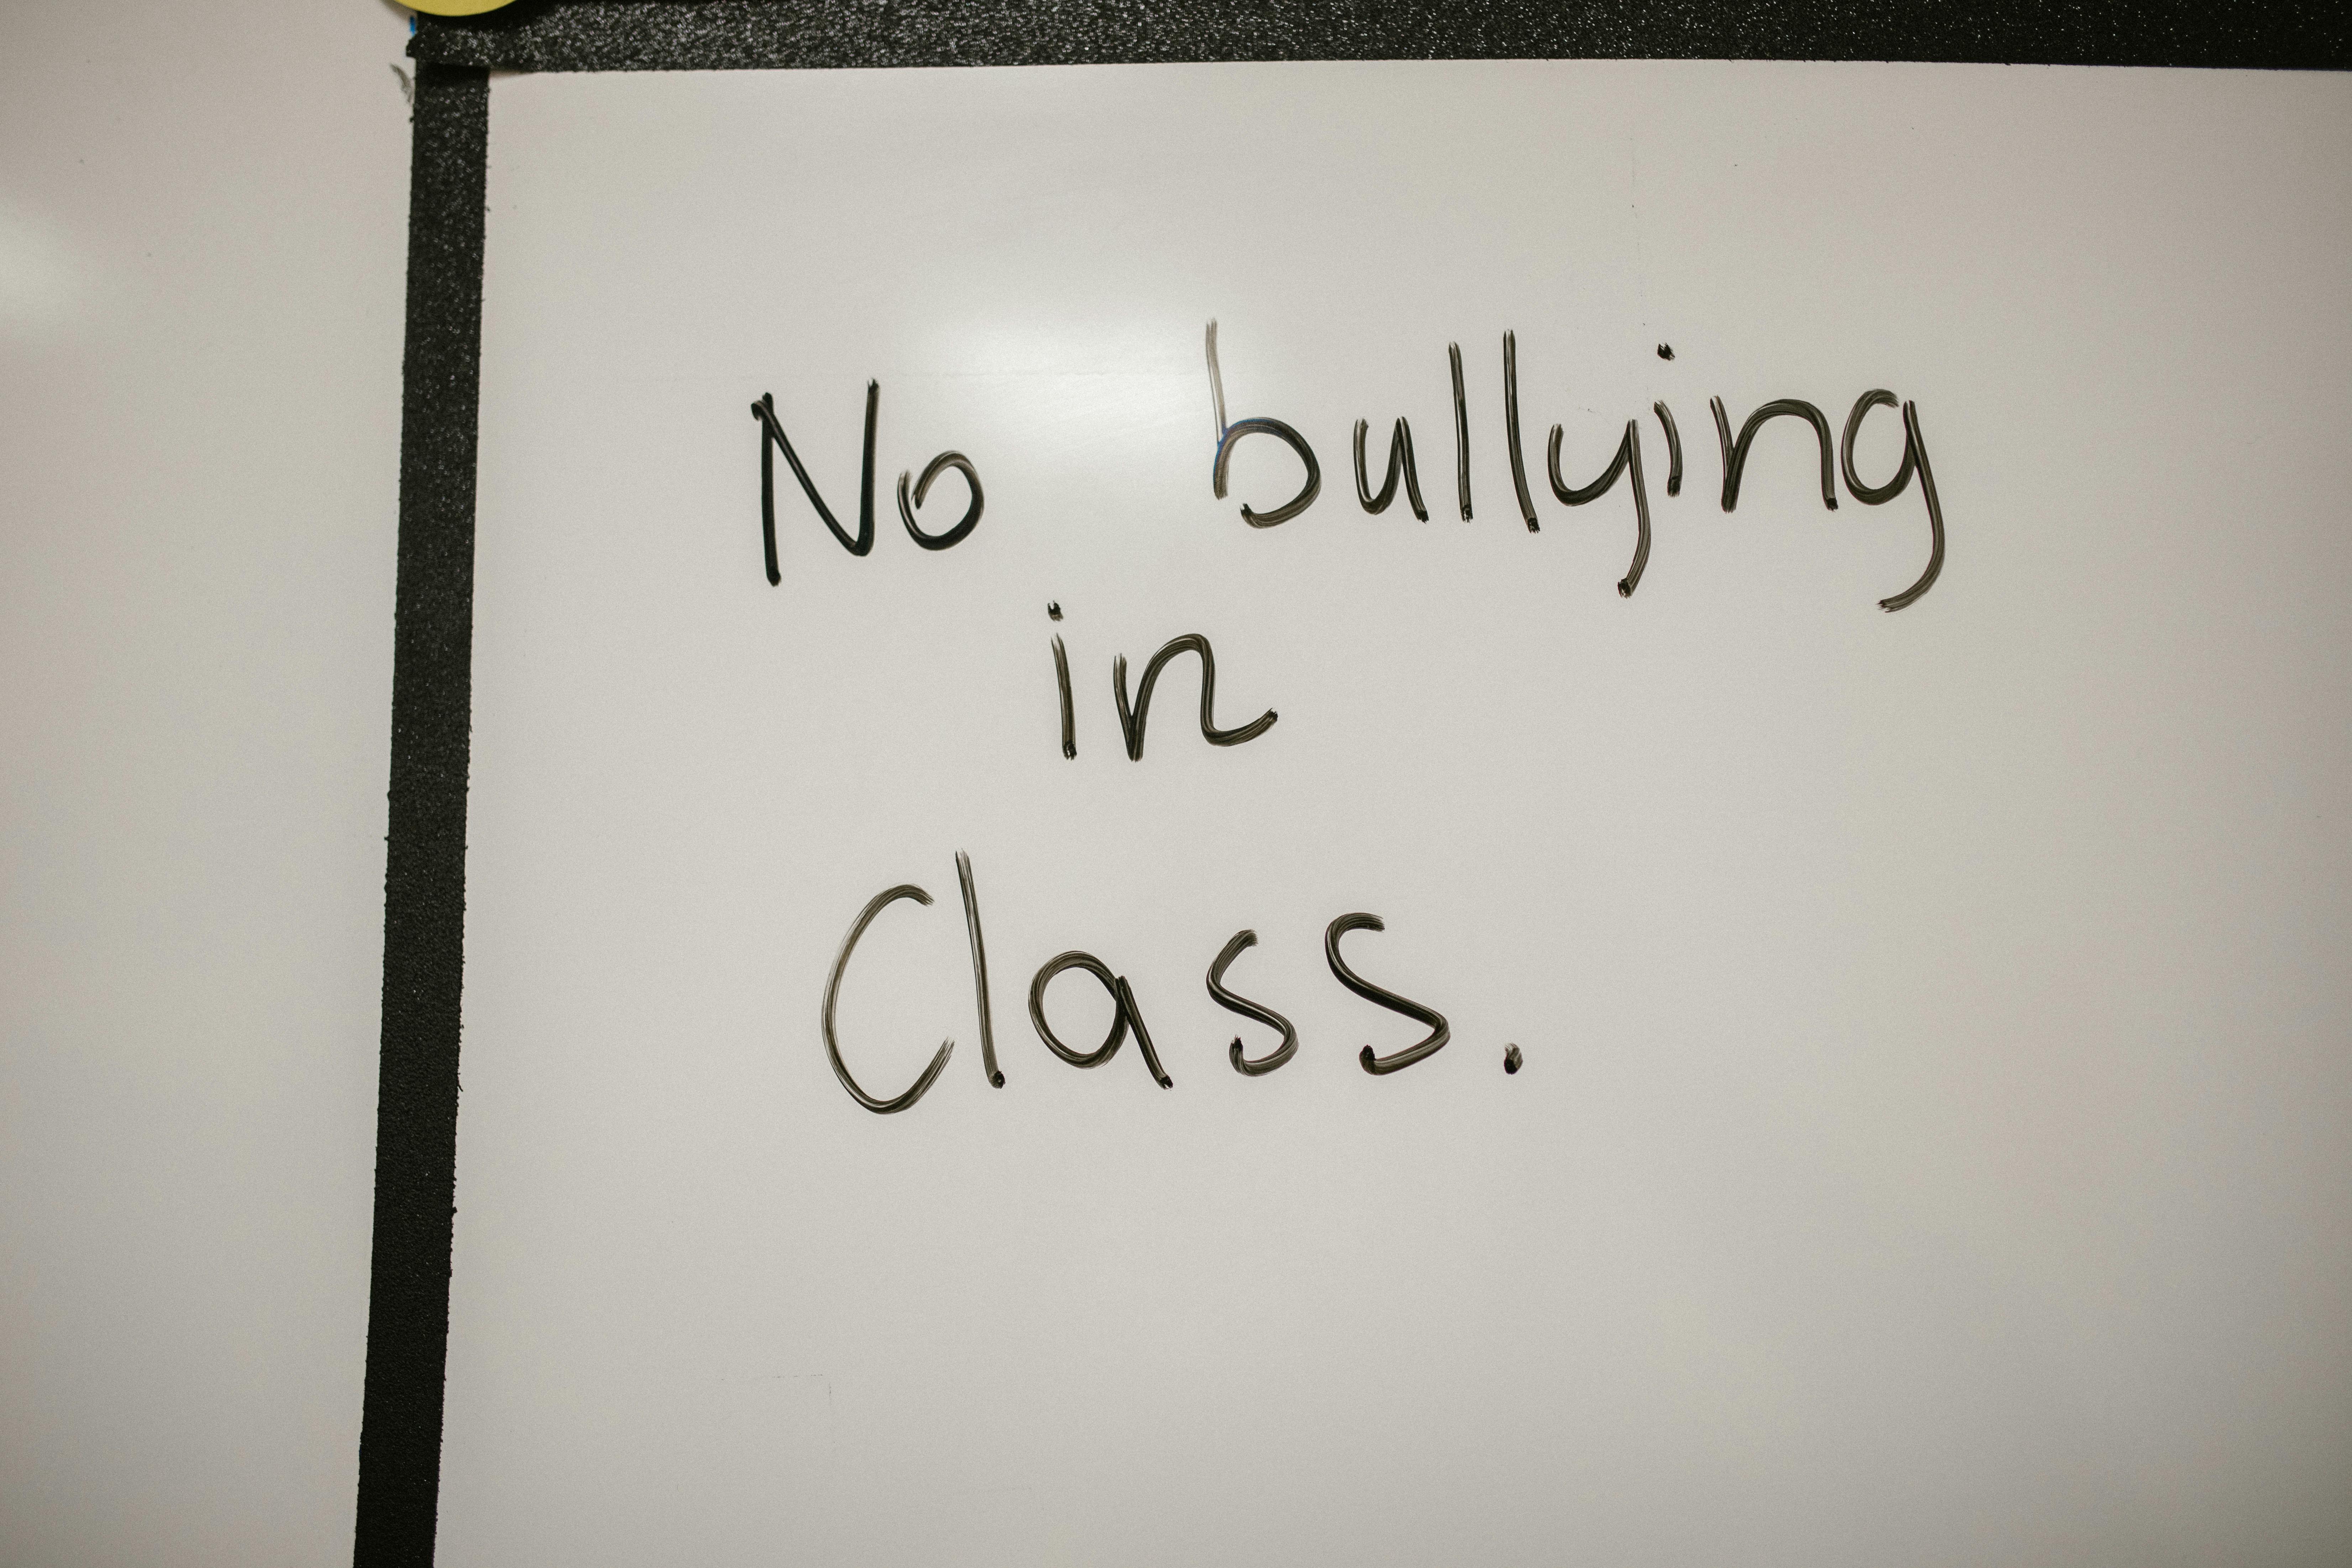 No bullying
in
Class.